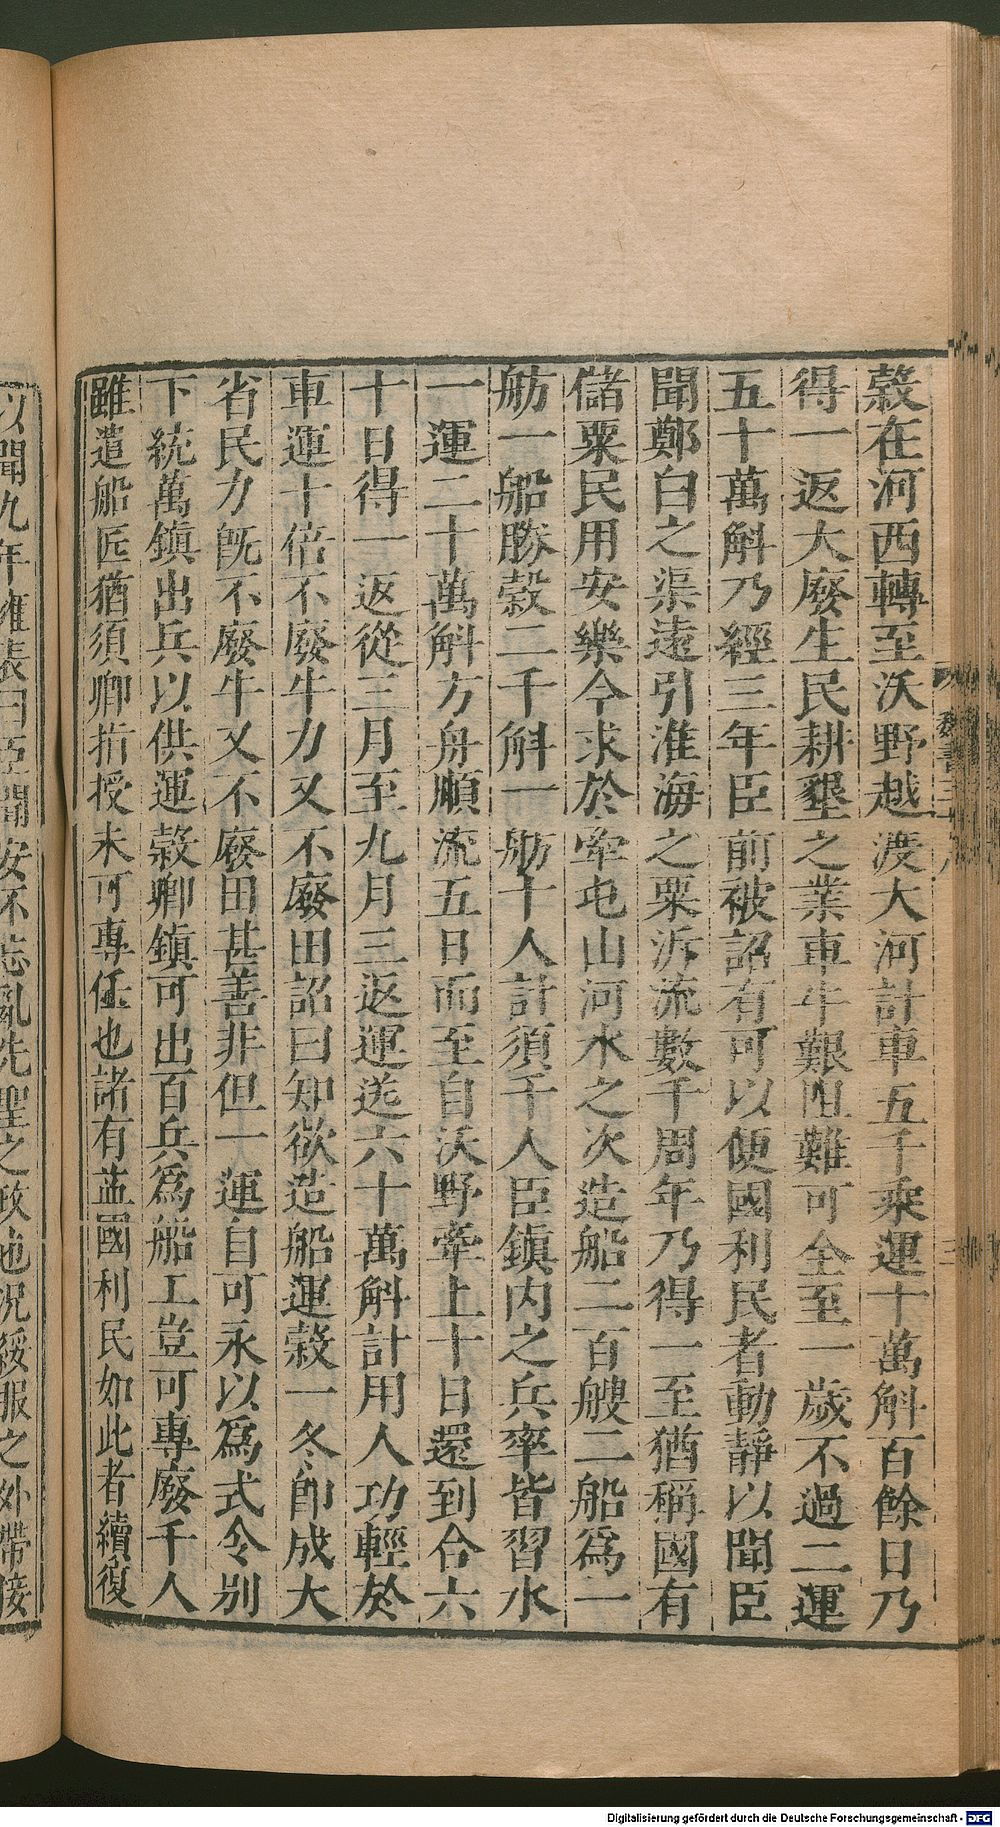 穀在河西轉至沃野越渡大河計車五千乘運十萬斛百餘日乃
得一返大廢生民耕墾之業車牛艱阻難可全至一歲不過二運
五十萬斛乃經三年臣前被詔有可以便國利民者動靜以聞臣
聞鄭白之渠遠引淮海之粟泝流數千周年乃得一至猶稱國有
儲粟民用安樂今求於牽屯山河水之次造船二百艘二船爲一
舫一船勝穀二千斛一舫十人計須千人臣鎮內之兵率皆習水
一運二十萬斛方舟順流五日而至自沃野牽上十日還到合六
十日得一返從三月至九月三返運送六十萬斛計用人功輕於
車運十倍不廢牛力又不廢田詔曰知欲造船運穀一冬卽成大
省民力旣不廢牛又不廢田甚善非但一運自可永以爲式令別
下統萬鎮出兵以供運穀卿鎮可出百兵爲船工豈可專廢千人
雖遣船匠猶須卿指授未可專任也諸有益國利民如此者續復
以聞九年雍表曰臣聞安不忘亂先聖之政也況綏服之外帶接
魏書三十八
三
Digitalisierung gefördert durch die Deutsche Forschungsgemeinschaft - DFG